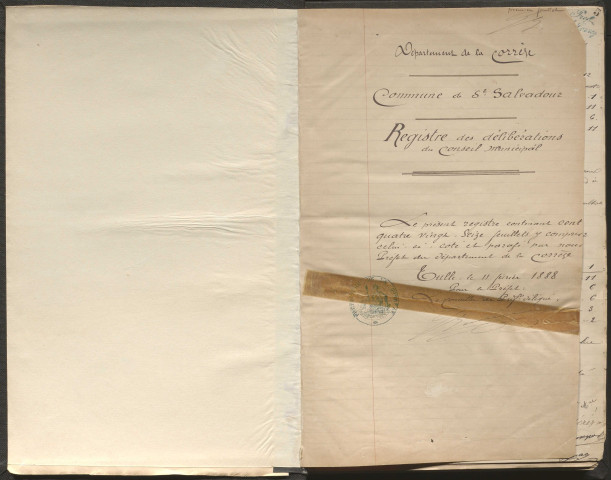 Département de la Corrèze
Commune de St Salvadour
Registre des délibérations
du Conseil municipal
Le présent registre contenant cent
quatre vingt-seize feuillets y compris
celui-ci coté et paraphé par nous
Préfet du département de la Corrèze
Tulle, le 11 1888
Pour le Préfet
Le